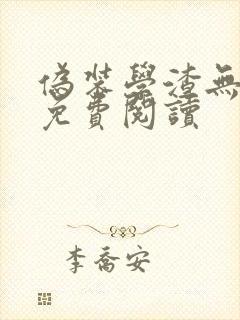 偽裝學渣無
免費閱讀
李喬安